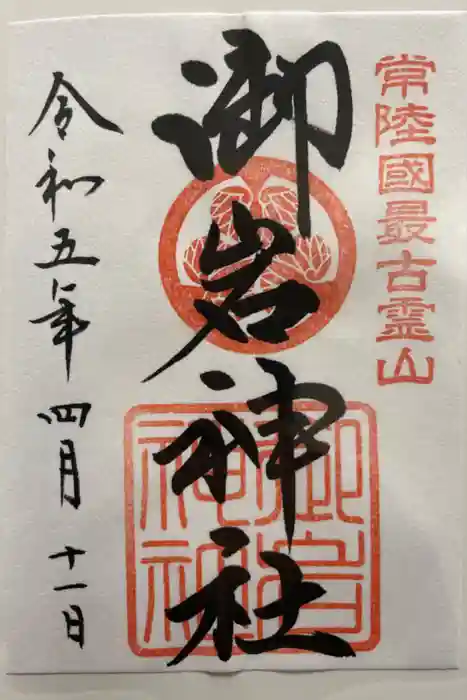 常陸國最古霊山
御岩神社
御岩神社
令和五年四月十一日